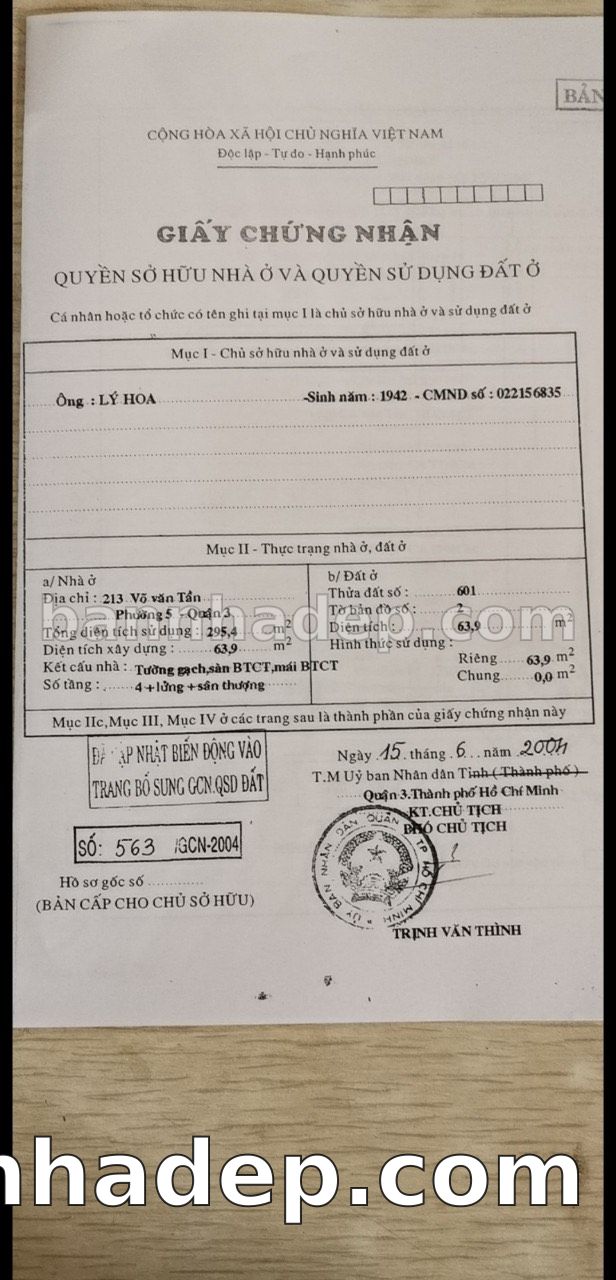 BẢN
CỘNG HÒA XÃ HỘI CHỦ NGHĨA VIỆT NAM
Độc lập - Tự do - Hạnh phúc
GIẤY CHỨNG NHẬN
QUYỀN SỞ HỮU NHÀ Ở VÀ QUYỀN SỬ DỤNG ĐẤT Ở
Cá nhân hoặc tổ chức có tên ghi tại mục I là chủ sở hữu nhà ở và sử dụng đất ở
Mục I - Chủ sở hữu nhà ở và sử dụng đất ở
Ông : LÝ HOA -Sinh năm : 1942 - CMND số : 022156835
Mục II - Thực trạng nhà ở, đất ở
a/ Nhà ở
Địa chỉ : 213 Võ văn Tần
Phường 5 Quận 3
Tổng diện tích sử dụng : 295,4 m2
Diện tích xây dựng : 63,9 m2
Kết cấu nhà : Tường gạch,sàn BTCT,mái BTCT
Số tầng : 4+lửng+sân thượng
b/ Đất ở
Thửa đất số : 601
Tờ bản đồ số : 2
Diện tích : 63,9 m2
Hình thức sử dụng :
Riêng 63,9 m2
Chung 0,0 m2
bannhadep.com
Mục IIc,Mục III, Mục IV ở các trang sau là thành phần của giấy chứng nhận này
CẬP NHẬT BIẾN ĐỘNG VÀO
TRANG BỔ SUNG GCN.QSD ĐẤT
SỐ: 563 /GCN-2004
Hồ sơ gốc số
(BẢN CẤP CHO CHỦ SỞ HỮU)
Ngày 15 tháng 6 năm 2004
T.M Uỷ ban Nhân dân Tỉnh ( Thành phố )
Quận 3.Thành phố Hồ Chí Minh
KT.CHỦ TỊCH
PHÓ CHỦ TỊCH
ỦY BAN NHÂN DÂN QUẬN TP HỒ CHÍ MINH
TRỊNH VĂN THÌNH
nhadep.com